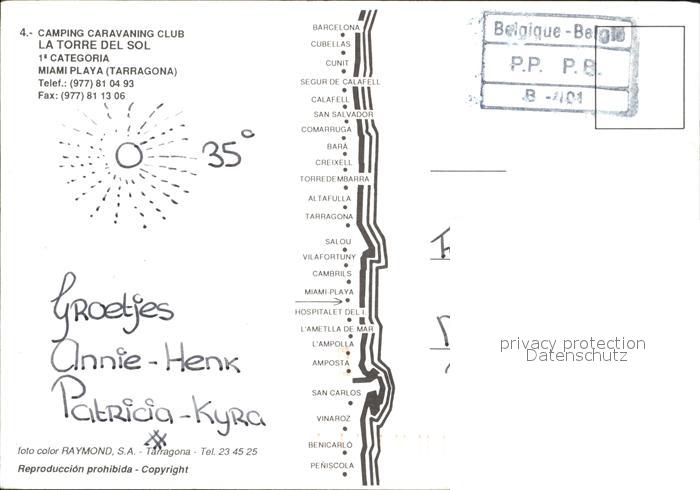 4.- CAMPING CARAVANING CLUB
LA TORRE DEL SOL
1ª CATEGORIA
MIAMI PLAYA (TARRAGONA)
Telef.: (977) 81 04 93
Fax: (977) 81 13 06
35°
Groetjes
Annie - Henk
Patricia - Kyra
foto color RAYMOND, S.A. - Tarragona - Tel. 23 45 25
Reproducción prohibida - Copyright
BARCELONA
CUBELLAS
CUNIT
SEGUR DE CALAFELL
CALAFELL
SAN SALVADOR
COMARRUGA
BARÁ
CREIXELL
TORREDEMBARRA
ALTAFULLA
TARRAGONA
SALOU
VILAFORTUNY
CAMBRILS
MIAMI-PLAYA
HOSPITALET DEL I.
L'AMETLLA DE MAR
L'AMPOLLA
AMPOSTA
SAN CARLOS
VINAROZ
BENICARLÓ
PEÑISCOLA
Belgique - België
P.P. P.B.
B - 401
privacy protection
Datenschutz